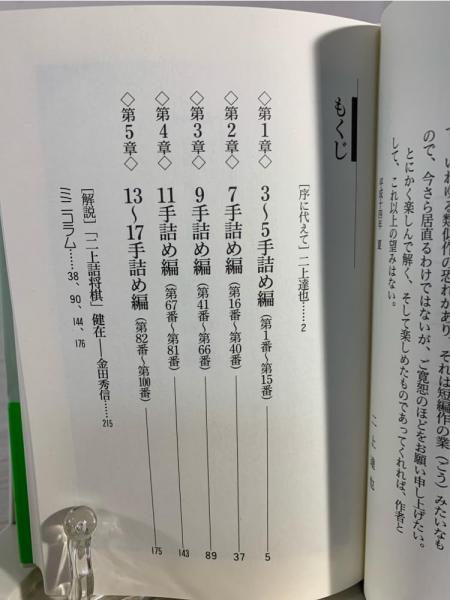 で、いわゆる類似作の恐れがあり、それは短編作の業(ごう)みたいなも
ので、今さら居直るわけではないが、ご寛恕のほどをお願い申し上げたい。
とにかく楽しんで解く、そして楽しめたものであってくれれば、作者と
して、これ以上の望みはない。
平成十四年 夏
二上達也
もくじ
[序に代えて]二上達也……2
◇第1章◇ 3〜5手詰め編(第1番〜第15番) 5
◇第2章◇ 7手詰め編(第16番〜第40番) 37
◇第3章◇ 9手詰め編(第41番〜第66番) 89
◇第4章◇ 11手詰め編(第67番〜第81番) 143
◇第5章◇ 13〜17手詰め編(第82番〜第100番) 175
[解説]「二上詰将棋」健在―金田秀信……215
ミニコラム……38、90、144、176